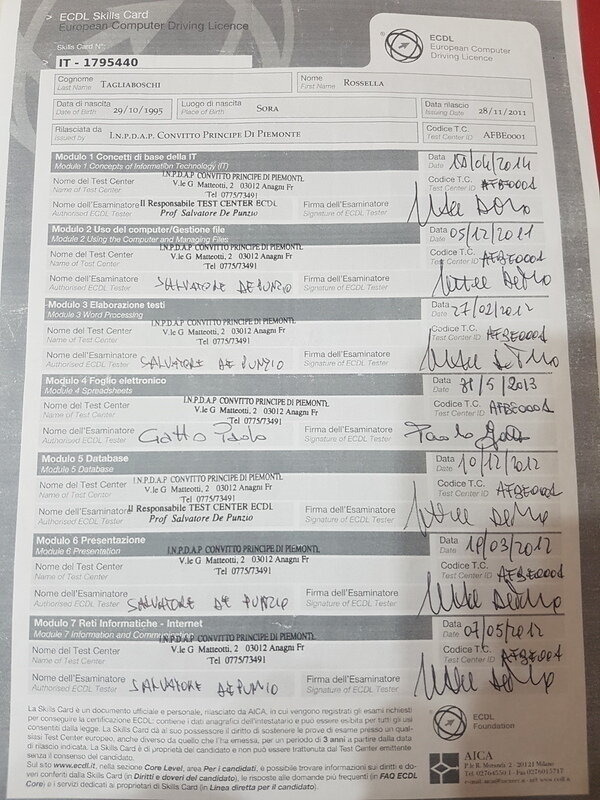 > ECDL Skills Card
European Computer Driving Licence
Skills Card N°:
IT - 1795440
® ECDL
European Computer
Driving Licence
Cognome
Last Name TAGLIABOSCHI
Nome
First Name ROSSELLA
Data di nascita
Date of Birth 29/10/1995
Luogo di nascita
Place of Birth SORA
Data rilascio
Issuing Date 28/11/2011
Rilasciata da
Issued by I.N.P.D.A.P. CONVITTO PRINCIPE DI PIEMONTE
Codice T.C. AFBE0001
Test Center ID
Modulo 1 Concetti di base della IT
Module 1 Concepts of Information Technology (IT)
Data
Date /04/2014
Nome del Test Center
Name of Test Center
I.N.P.D.A.P. CONVITTO PRINCIPE DI PIEMONTE
V.le G Matteotti, 2 03012 Anagni Fr
Tel 0775/73491
Codice T.C. AFBE0001
Test Center ID
Nome dell'Esaminatore Il Responsabile TEST CENTER ECDL
Authorised ECDL Tester Prof Salvatore De Punzio
Firma dell'Esaminatore
Signature of ECDL Tester
Modulo 2 Uso del computer/Gestione file
Module 2 Using the Computer and Managing Files
Data
Date 05/12/2011
Nome del Test Center
Name of Test Center
I.N.P.D.A.P. CONVITTO PRINCIPE DI PIEMONTE
V.le G Matteotti, 2 03012 Anagni Fr
Tel 0775/73491
Codice T.C. AFBE0001
Test Center ID
Nome dell'Esaminatore SALVATORE DE PUNZIO
Authorised ECDL Tester
Firma dell'Esaminatore
Signature of ECDL Tester
Modulo 3 Elaborazione testi
Module 3 Word Processing
Data
Date 27/02/2012
Nome del Test Center
Name of Test Center
I.N.P.D.A.P. CONVITTO PRINCIPE DI PIEMONTE
V.le G Matteotti, 2 03012 Anagni Fr
Tel 0775/73491
Codice T.C. AFBE0001
Test Center ID
Nome dell'Esaminatore SALVATORE DE PUNZIO
Authorised ECDL Tester
Firma dell'Esaminatore
Signature of ECDL Tester
Modulo 4 Foglio elettronico
Module 4 Spreadsheets
Data
Date 31/5/2013
Nome del Test Center
Name of Test Center
I.N.P.D.A.P. CONVITTO PRINCIPE DI PIEMONTE
V.le G Matteotti, 2 03012 Anagni Fr
Tel 0775/73491
Codice T.C. AFBE0001
Test Center ID
Nome dell'Esaminatore Gatto Paolo
Authorised ECDL Tester
Firma dell'Esaminatore Paolo Gatto
Signature of ECDL Tester
Modulo 5 Database
Module 5 Database
Data
Date 10/12/2012
Nome del Test Center
Name of Test Center
I.N.P.D.A.P. CONVITTO PRINCIPE DI PIEMONTE
V.le G Matteotti, 2 03012 Anagni Fr
Tel 0775/73491
Codice T.C. AFBE0001
Test Center ID
Nome dell'Esaminatore Il Responsabile TEST CENTER ECDL
Authorised ECDL Tester Prof Salvatore De Punzio
Firma dell'Esaminatore
Signature of ECDL Tester
Modulo 6 Presentazione
Module 6 Presentation
Data
Date 19/03/2012
Nome del Test Center
Name of Test Center
I.N.P.D.A.P. CONVITTO PRINCIPE DI PIEMONTE
V.le G Matteotti, 2 03012 Anagni Fr
Tel 0775/73491
Codice T.C. AFBE0001
Test Center ID
Nome dell'Esaminatore SALVATORE DE PUNZIO
Authorised ECDL Tester
Firma dell'Esaminatore
Signature of ECDL Tester
Modulo 7 Reti Informatiche - Internet
Module 7 Information and Communication
Data
Date 07/05/2012
Nome del Test Center
Name of Test Center
I.N.P.D.A.P. CONVITTO PRINCIPE DI PIEMONTE
V.le G Matteotti, 2 03012 Anagni Fr
Tel 0775/73491
Codice T.C. AFBE0001
Test Center ID
Nome dell'Esaminatore SALVATORE DE PUNZIO
Authorised ECDL Tester
Firma dell'Esaminatore
Signature of ECDL Tester
La Skills Card è un documento ufficiale e personale, rilasciato da AICA, in cui vengono registrati gli esami richiesti
per conseguire la certificazione ECDL: contiene i dati anagrafici dell'intestatario e può essere esibita per tutti gli usi
consentiti dalla legge. La Skills Card dà al suo possessore il diritto di sostenere le prove di esame presso un qual-
siasi Test Center europeo, anche diverso da quello che l'ha emessa, per un periodo di 3 anni a partire dalla data
di rilascio indicata. La Skills Card è di proprietà del candidato e non può essere trattenuta dal Test Center emittente
senza il consenso del candidato.
Sul sito www.ecdl.it, nella sezione Core Level, area Per i candidati, è possibile trovare informazioni sui diritti e do-
veri conferiti dalla Skills Card (in Diritti e doveri del candidato), le risposte alle domande più frequenti (in FAQ ECDL
Core) e i servizi dedicati ai proprietari di Skills Card (in Linea diretta per il candidato).
® ECDL
Foundation
AICA
P.le R. Morandi, 2 - 20121 Milano
Tel. 02764550.1 - Fax 0276015717